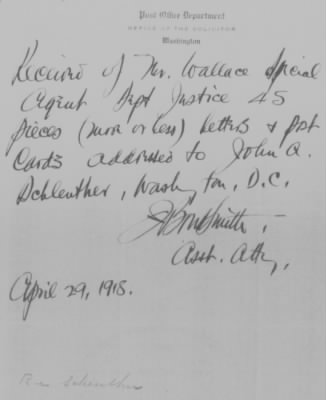 Post Office Department
OFFICE OF THE SOLICITOR
Washington
Received of Mr. Wallace Special
Agent Dept Justice 45
pieces (more or less) letters & post
Cards addressed to John A.
Schleuther, Washington, D.C.
Smith,
Asst. Atty,
April 29, 1918.